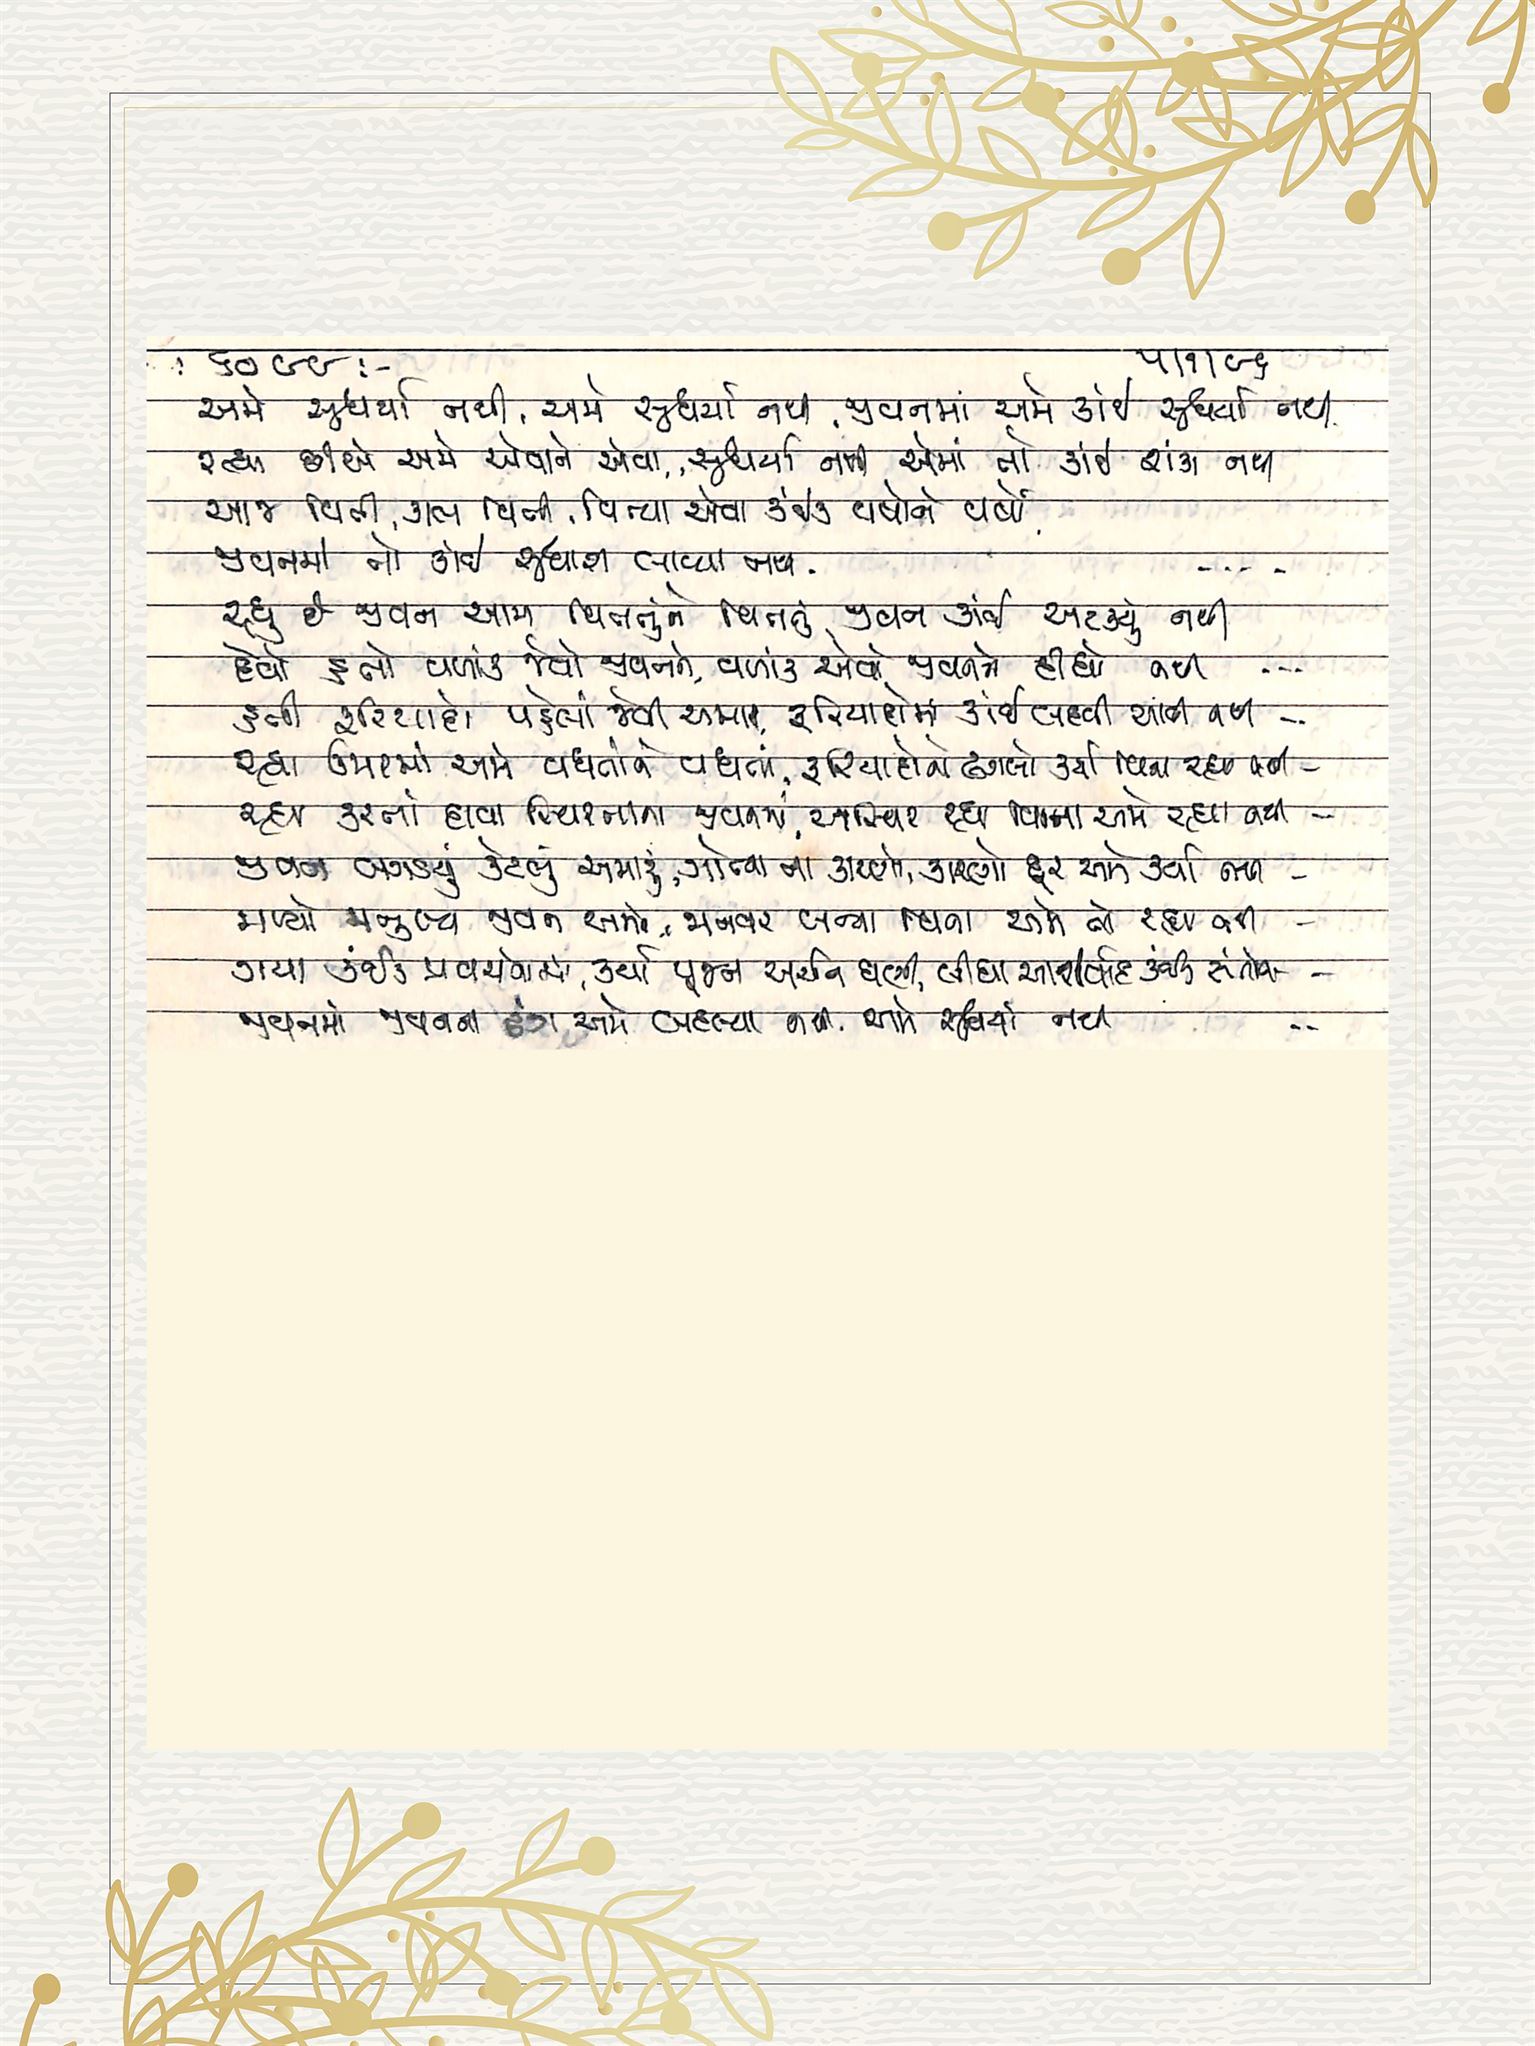 : ૬૦૯૯ :- ૫/૧/૯૬
અમે સુધર્યા નથી, અમે સુધર્યા નથી, જીવનમાં અમે કાંઈ સુધર્યા નથી
રહ્યા છીએ અમે એવાને એવા, સુધર્યા નથી એમાં તો કાંઈ શંકા નથી
આજ વિતી, કાલ વિતી, વિત્યા એવા કંઈક વર્ષોને વર્ષો
જીવનમાં તો કાંઈ સુધારા લાવ્યા નથી. ....
રહ્યું છે જીવન આમ વિતતુંને વિતતું, જીવન કાંઈ અટક્યું નથી
દેવો હતો વળાંક જેવો જીવનને, વળાંક એવો જીવનને દીધો નથી ...
હતી ફરિયાદો પહેલાં જેવી અમારી, ફરિયાદોમાં કાંઈ બદલી આવી નથી --
રહ્યા ઉમરમાં અમે વધતાંને વધતાં, ફરિયાદોનો ઢગલો કર્યા વિના રહ્યા નથી -
રહ્યા કરતાં દાવા સ્થિરતાના જીવનમાં, અસ્થિર રહ્યા વિના અમે રહ્યા નથી -
જીવન બગડ્યું કેટલું અમારું, ગોત્યા ના કારણો, કારણો દૂર અમે કર્યા નથી -
મળ્યો મનુષ્ય જીવન અમને, જાનવર બન્યા વિના અમે તો રહ્યા નથી -
ગયા કંઈક પ્રવચનોમાં, કર્યા પૂજન અર્ચન ઘણાં, લીધા આશીર્વાદ કંઈક સંતોના -
જીવનમાં જીવનના ઢંગ અમે બદલ્યા નથી. અમે સુધર્યા નથી --